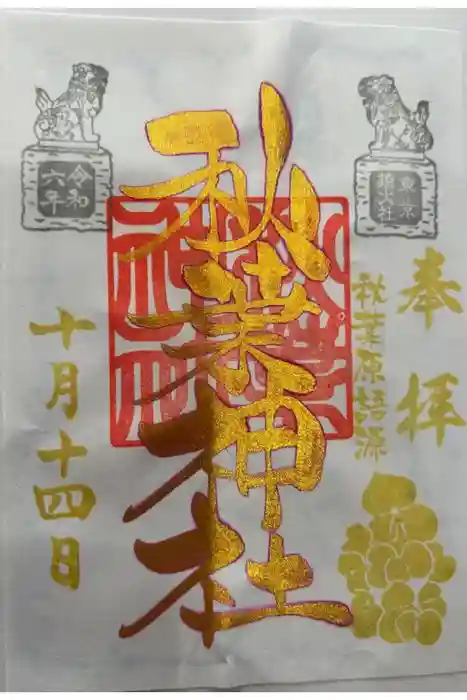 奉拝
秋葉原語源
東京
秋葉神社
令和
六年
十月十四日